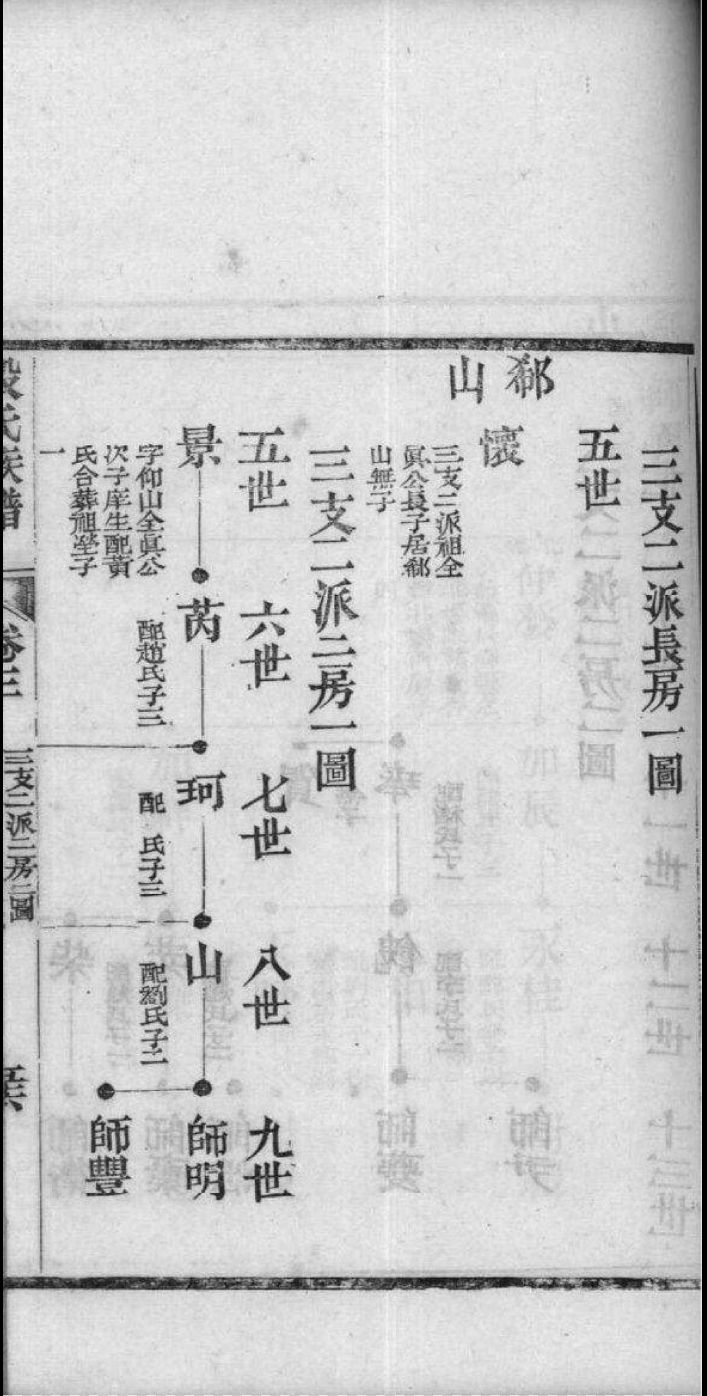 三支二派長房一圖
五世
郗山
懷
三支二派祖全
眞公長子居郗
山無子
三支二派二房一圖
五世 六世 七世 八世 九世
景 芮 珂 山 師明
師豐
字仰山全眞公
次子庠生配黃
氏合葬祖塋子
一
配趙氏子三
配 氏子三
配劉氏子二
氏族譜 卷三 三支二派二房一圖